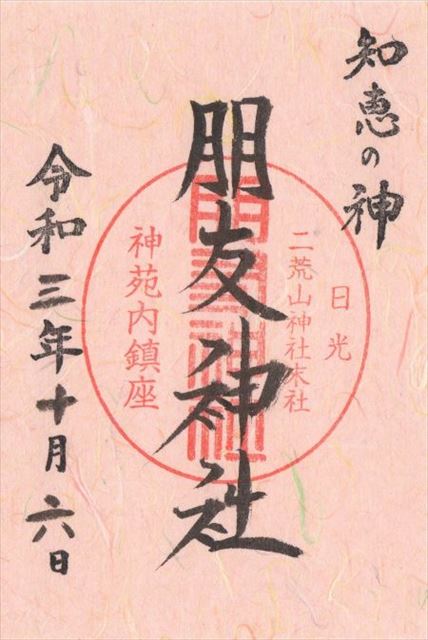 知恵の神
日光
二荒山神社末社
朋友神社
朋友神社
神苑内鎮座
令和三年十月六日